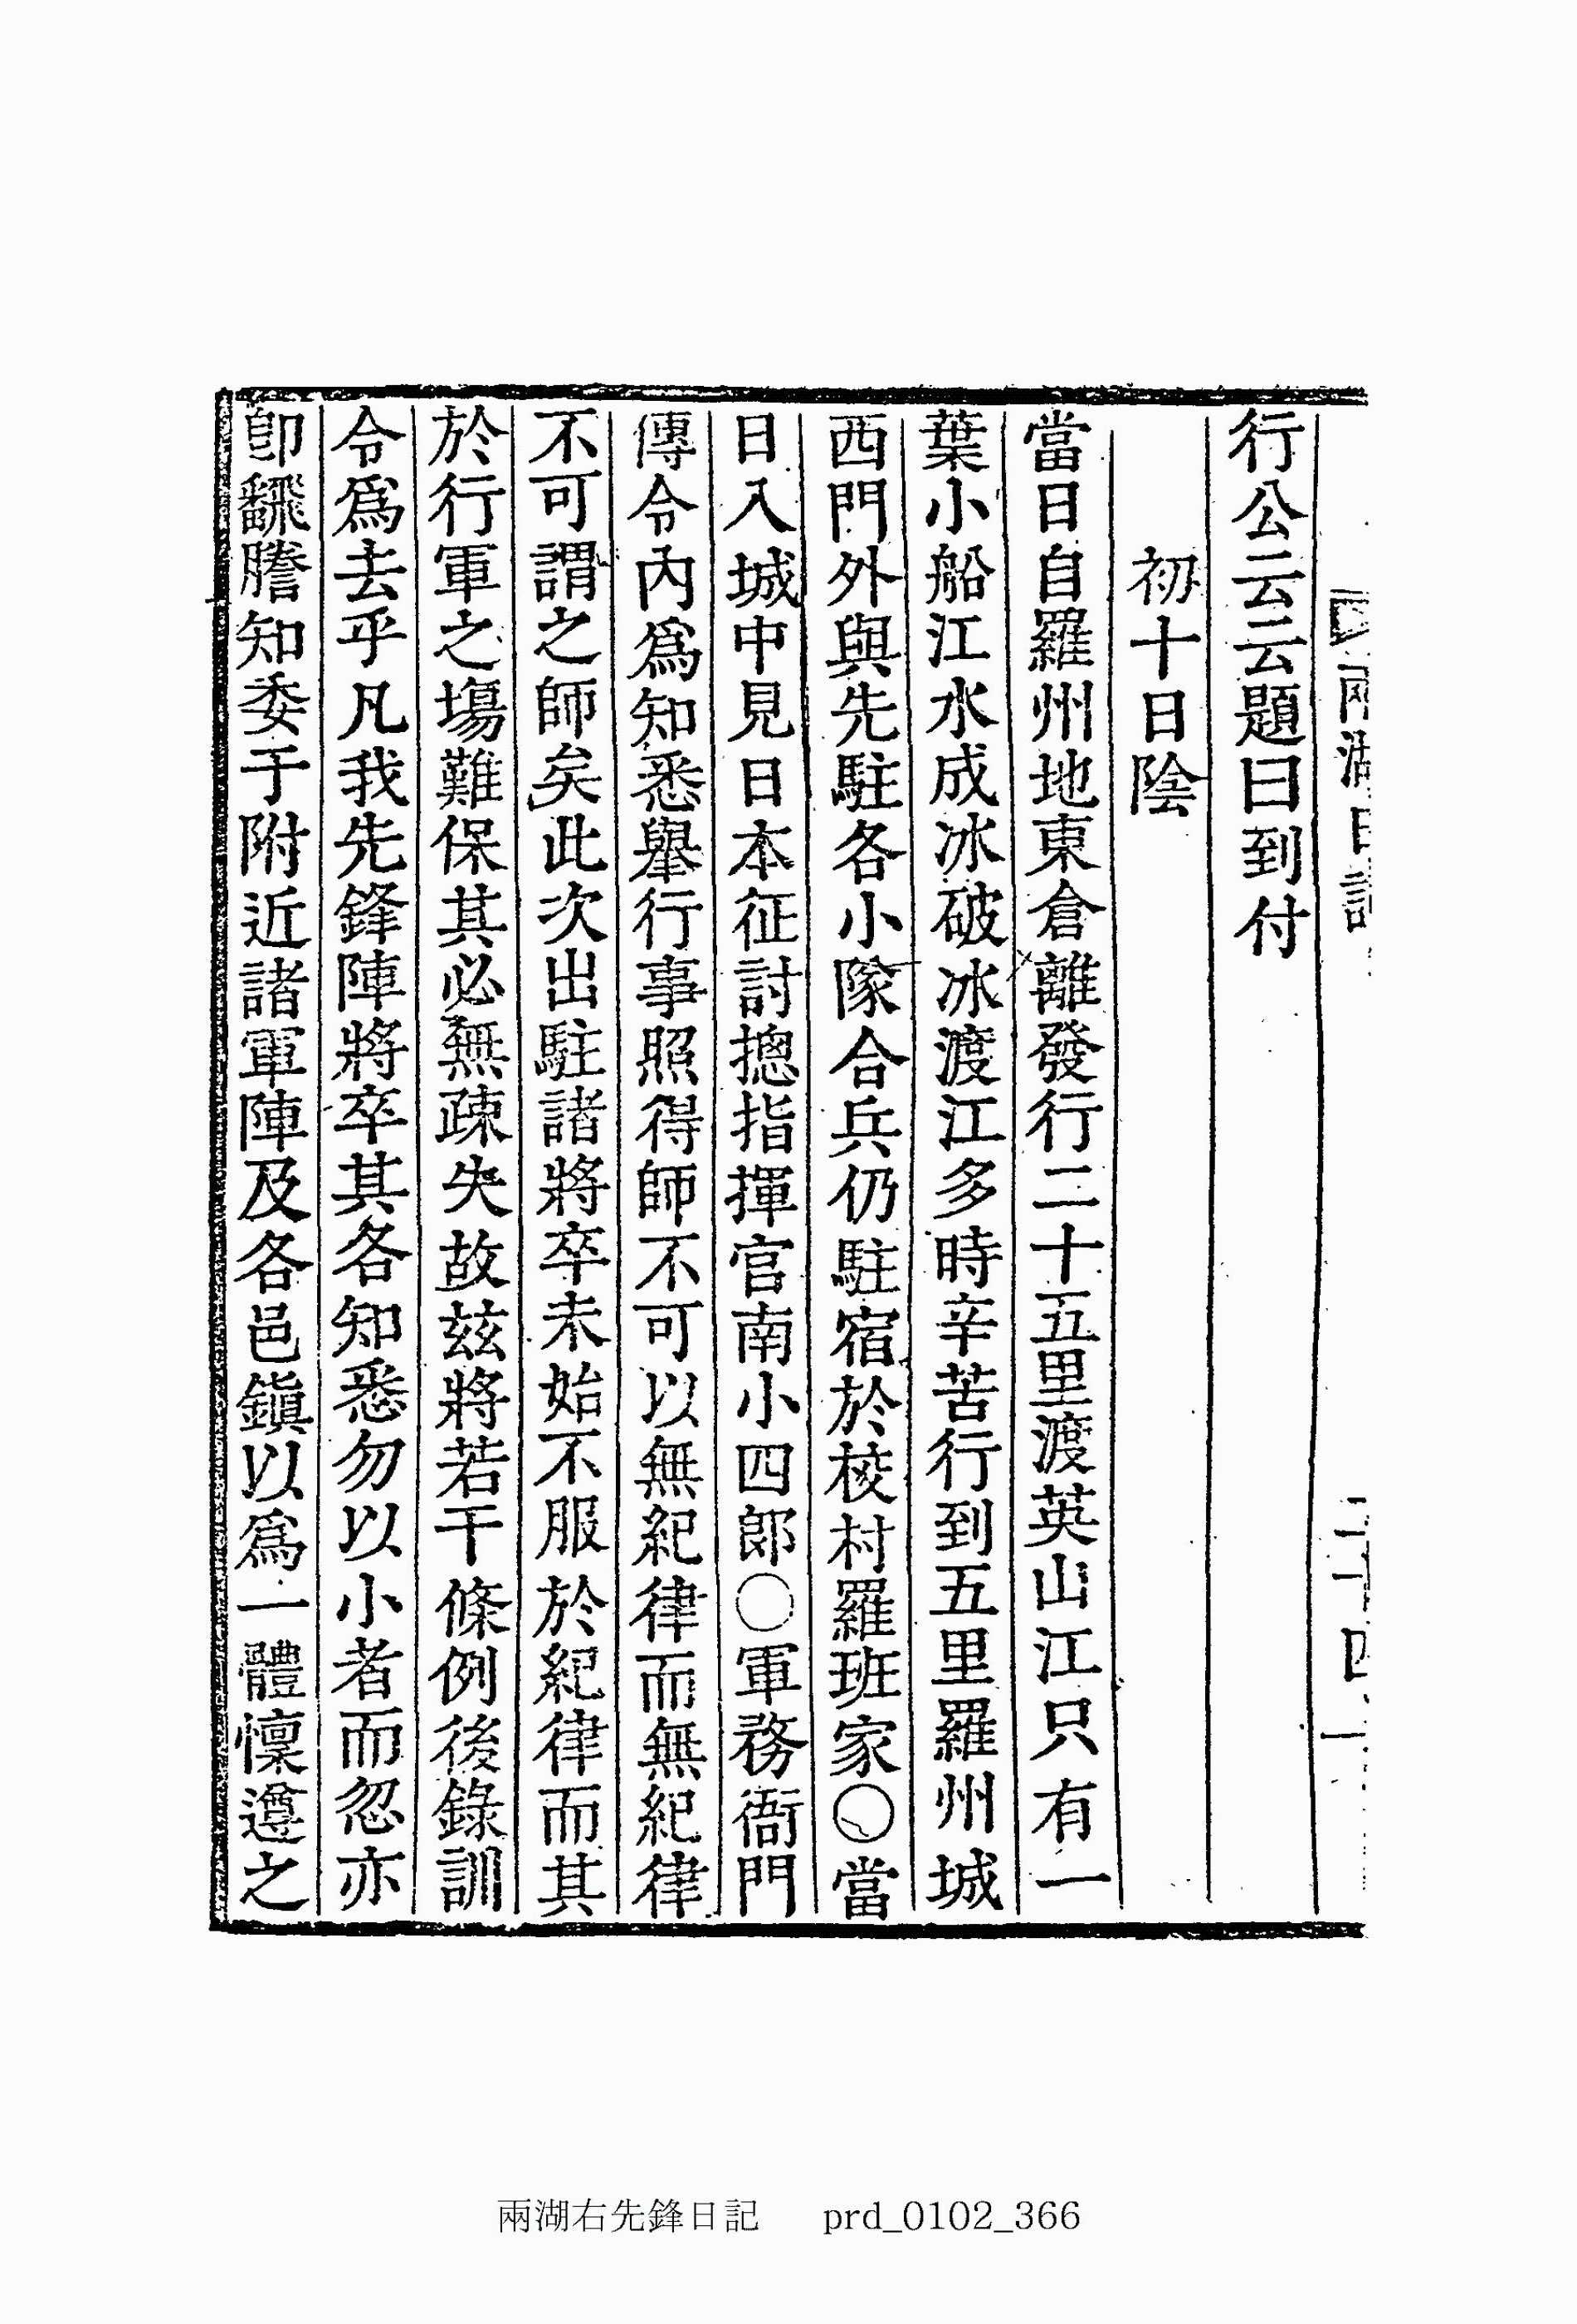 兩湖日記
二十四
行公云云題曰到付
初十日陰
當日自羅州地東倉離發行二十五里渡英山江只有一
葉小船江水成冰破冰渡江多時辛苦行到五里羅州城
西門外與先駐各小隊合兵仍駐宿於校村羅班家○當
日入城中見日本征討摠指揮官南小四郎○軍務衙門
傳令內爲知悉擧行事照得師不可以無紀律而無紀律
不可謂之師矣此次出駐諸將卒未始不服於紀律而其
於行軍之塲難保其必無疎失故玆將若干條例後錄訓
令爲去乎凡我先鋒陣將卒其各知悉勿以小者而忽亦
卽飜謄知委于附近諸軍陣及各邑鎭以爲一體懍遵之
兩湖右先鋒日記 prd_0102_366